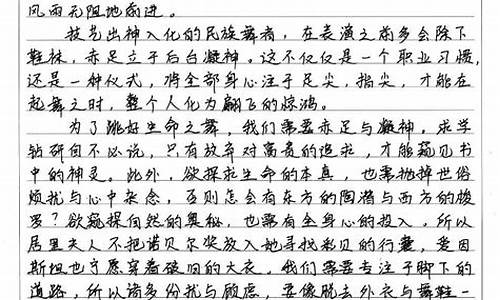 风雨无阻地前进。
技艺出神入化的民族舞者，在表演之前多会除下
鞋袜，赤足立于后台凝神。这不仅仅是一个职业习惯，
还是一种仪式，将全部身心注于足尖，指尖，才能在
起舞之时，整个人化为翩飞的惊鸿。
为了跳好生命之舞，我们需要赤足与凝神。求学
钻研自不必说，只有放弃对富贵的追求，才能窥见书
中的神灵。此外，欲探求生命的本真，也需抛掉世俗
烦扰与心中杂念，否则怎会有东方的陶潜与西方的梭
罗？欲窥探自然的奥秘，也需有全身心的投入。所以
居里夫人不把诺贝尔奖放入她寻找彩贝的行囊，爱因
斯坦也宁愿穿着破旧的大衣。我们需要专注于脚下的
道路，所以请多份找与顾虑，要像脱去外衣与舞鞋一